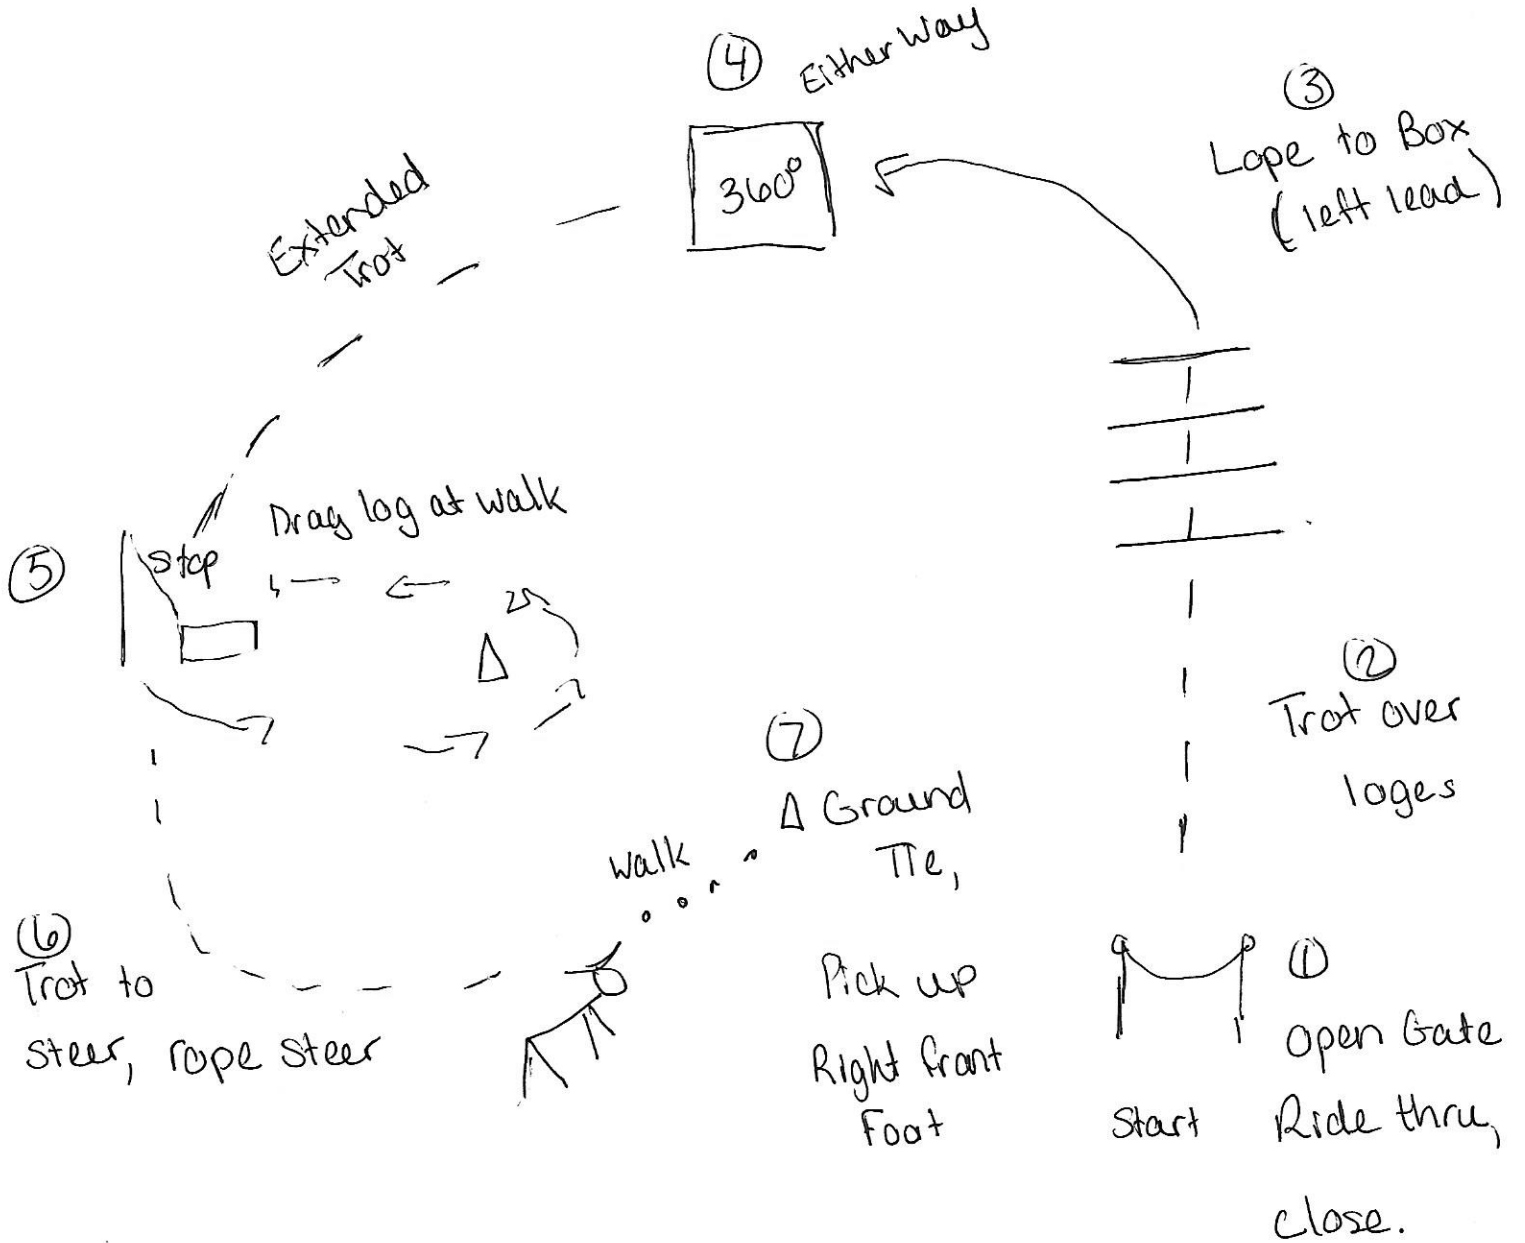 ④ Either Way
360°
③
Lope to Box
(left lead)
Extended
Trot
⑤
Stop
Drag log at walk
②
Trot over
loges
⑦
Ground
Tie,
Pick up
Right front
Foot
walk
⑥
Trot to
steer, rope steer
①
open Gate
Ride thru,
close.
Start